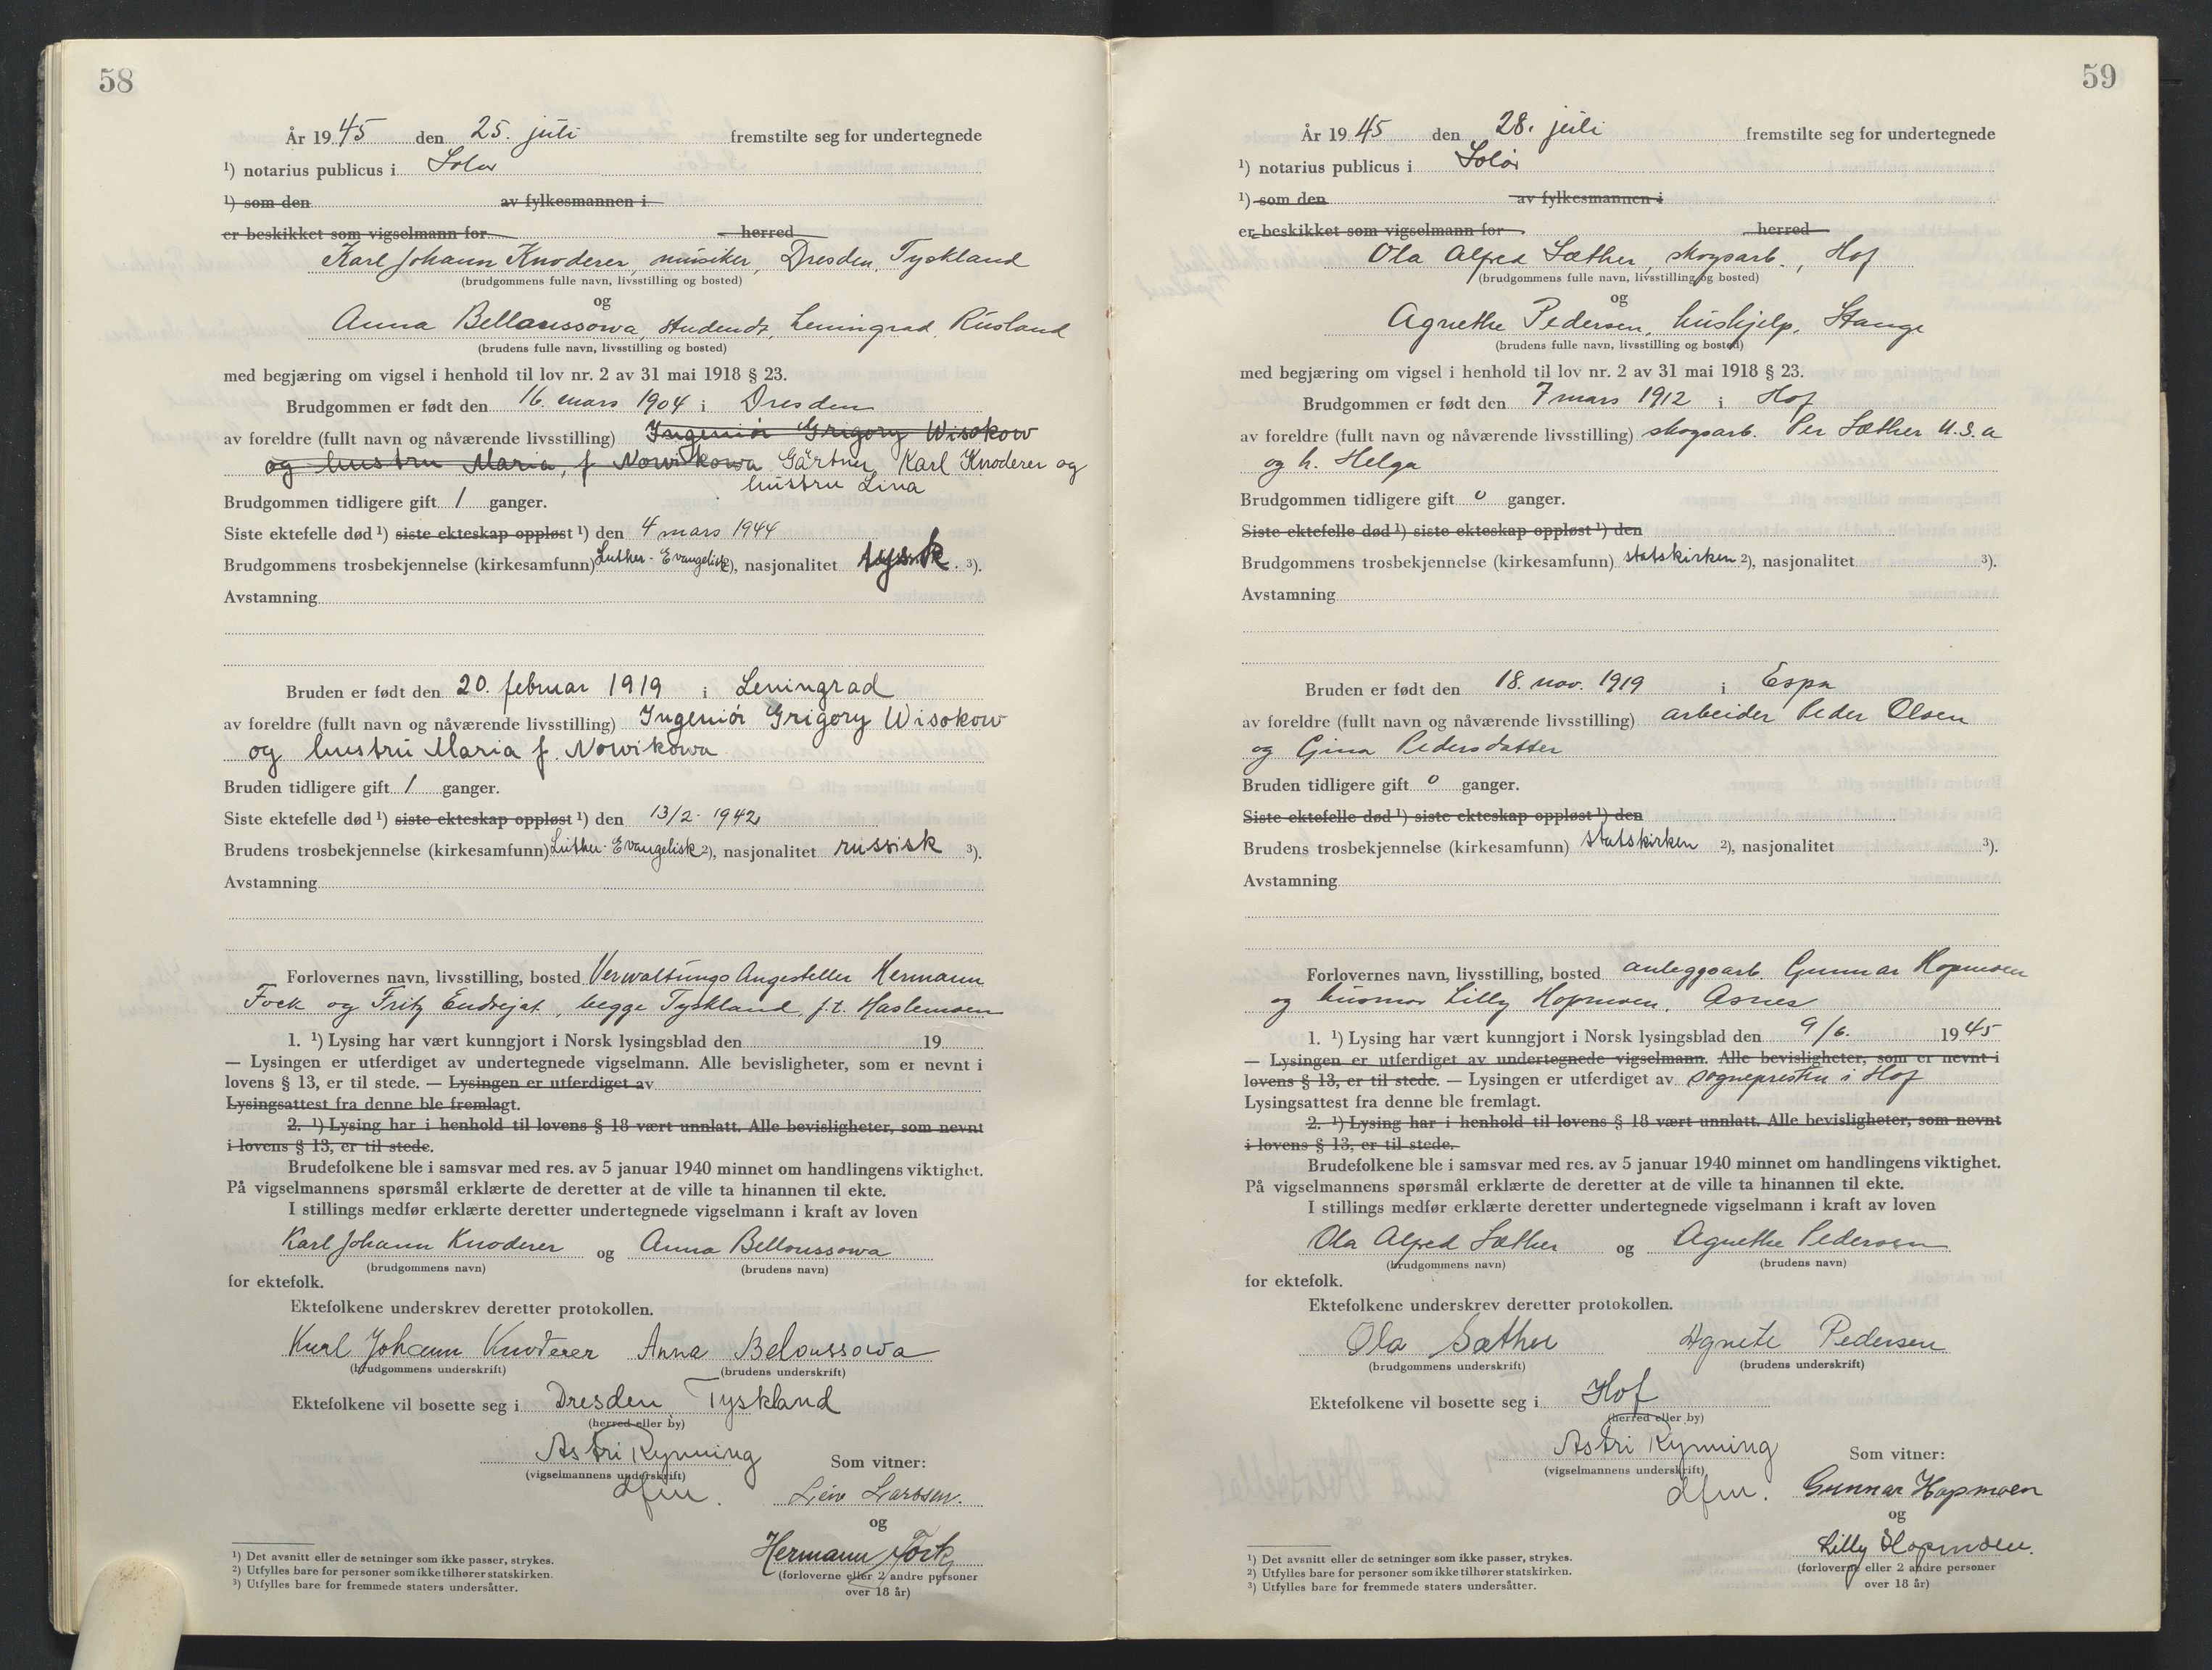 58
År 1945 den 25. juli fremstilte seg for undertegnede
¹) notarius publicus i Solør
¹) som den av fylkesmannen i
er beskikket som vigselmann for herred
Karl Johann Knoderer, musiker, Dresden, Tyskland
(brudgommens fulle navn, livsstilling og bosted)
og
Anna Belloussowa, studendt, Leningrad, Rusland
(brudens fulle navn, livsstilling og bosted)
med begjæring om vigsel i henhold til lov nr. 2 av 31 mai 1918 § 23.
Brudgommen er født den 16. mars 1904 i Dresden
av foreldre (fullt navn og nåværende livsstilling) Ingeniør Grigory Wisokow
og hustru Maria, f. Nowikowa Gärtner Karl Knoderer og
hustru Lina
Brudgommen tidligere gift 1 ganger.
Siste ektefelle død ¹) siste ekteskap oppløst ¹) den 4 mars 1944
Brudgommens trosbekjennelse (kirkesamfunn) Luther-Evangelisk ²), nasjonalitet tysk. ³).
Avstamning
Bruden er født den 20. februar 1919 i Leningrad
av foreldre (fullt navn og nåværende livsstilling) Ingeniør Grigory Wisokow
og hustru Maria f. Nowikowa
Bruden tidligere gift 1 ganger.
Siste ektefelle død ¹) siste ekteskap oppløst ¹) den 13/2. 1942
Brudens trosbekjennelse (kirkesamfunn) Luther-Evangelisk ²), nasjonalitet russisk ³).
Avstamning
Forlovernes navn, livsstilling, bosted Verwaltungs Angesteller Hermann
Fock og Fritz Endrejat, begge Tyskland, f.t. Haslemoen
1. ¹) Lysing har vært kunngjort i Norsk lysingsblad den 19
— Lysingen er utferdiget av undertegnede vigselmann. Alle bevisligheter, som er nevnt i
lovens § 13, er til stede. — Lysingen er utferdiget av
Lysingsattest fra denne ble fremlagt.
2. ¹) Lysing har i henhold til lovens § 18 vært unnlatt. Alle bevisligheter, som nevnt
i lovens § 13, er til stede.
Brudefolkene ble i samsvar med res. av 5 januar 1940 minnet om handlingens viktighet.
På vigselmannens spørsmål erklærte de deretter at de ville ta hinannen til ekte.
I stillings medfør erklærte deretter undertegnede vigselmann i kraft av loven
Karl Johann Knoderer og Anna Belloussowa
(brudgommens navn) (brudens navn)
for ektefolk.
Ektefolkene underskrev deretter protokollen.
Karl Johann Knoderer Anna Beloussowa
(brudgommens underskrift) (brudens underskrift)
Ektefolkene vil bosette seg i Dresden Tyskland
(herred eller by)
Astri Rynning
(vigselmannens underskrift)
dfm.
Som vitner:
Leiv Larssen.
og
Hermann Fock
(forloverne eller 2 andre personer
over 18 år)
¹) Det avsnitt eller de setninger som ikke passer, strykes.
²) Utfylles bare for personer som ikke tilhører statskirken.
³) Utfylles bare for fremmede staters undersåtter.
59
År 1945 den 28. juli fremstilte seg for undertegnede
¹) notarius publicus i Solør
¹) som den av fylkesmannen i
er beskikket som vigselmann for herred
Ola Alfred Sæther, skogsarb., Hof
(brudgommens fulle navn, livsstilling og bosted)
og
Agnethe Pedersen, hushjelp, Stange
(brudens fulle navn, livsstilling og bosted)
med begjæring om vigsel i henhold til lov nr. 2 av 31 mai 1918 § 23.
Brudgommen er født den 7 mars 1912 i Hof
av foreldre (fullt navn og nåværende livsstilling) skogsarb. Per Sæther U.S.a
og h. Helga
Brudgommen tidligere gift 0 ganger.
Siste ektefelle død ¹) siste ekteskap oppløst ¹) den
Brudgommens trosbekjennelse (kirkesamfunn) statskirken ²), nasjonalitet ³).
Avstamning
Bruden er født den 18. nov. 1919 i Espa
av foreldre (fullt navn og nåværende livsstilling) arbeider Peder Olsen
og Gina Pedersdatter
Bruden tidligere gift 0 ganger.
Siste ektefelle død ¹) siste ekteskap oppløst ¹) den
Brudens trosbekjennelse (kirkesamfunn) statskirken ²), nasjonalitet ³).
Avstamning
Forlovernes navn, livsstilling, bosted anleggsarb. Gunnar Hopmoen
og husmor Lilly Hopmoen, Åsnes
1. ¹) Lysing har vært kunngjort i Norsk lysingsblad den 9/6. 1945
— Lysingen er utferdiget av undertegnede vigselmann. Alle bevisligheter, som er nevnt i
lovens § 13, er til stede. — Lysingen er utferdiget av sognepresten i Hof
Lysingsattest fra denne ble fremlagt.
2. ¹) Lysing har i henhold til lovens § 18 vært unnlatt. Alle bevisligheter, som nevnt
i lovens § 13, er til stede.
Brudefolkene ble i samsvar med res. av 5 januar 1940 minnet om handlingens viktighet.
På vigselmannens spørsmål erklærte de deretter at de ville ta hinannen til ekte.
I stillings medfør erklærte deretter undertegnede vigselmann i kraft av loven
Ola Alfred Sæther og Agnethe Pedersen
(brudgommens navn) (brudens navn)
for ektefolk.
Ektefolkene underskrev deretter protokollen.
Ola Sæther Agnete Pedersen
(brudgommens underskrift) (brudens underskrift)
Ektefolkene vil bosette seg i Hof
(herred eller by)
Astri Rynning
(vigselmannens underskrift)
dfm.
Som vitner:
Gunnar Hopmoen
og
Lilly Hopmoen.
(forloverne eller 2 andre personer
over 18 år)
¹) Det avsnitt eller de setninger som ikke passer, strykes.
²) Utfylles bare for personer som ikke tilhører statskirken.
³) Utfylles bare for fremmede staters undersåtter.